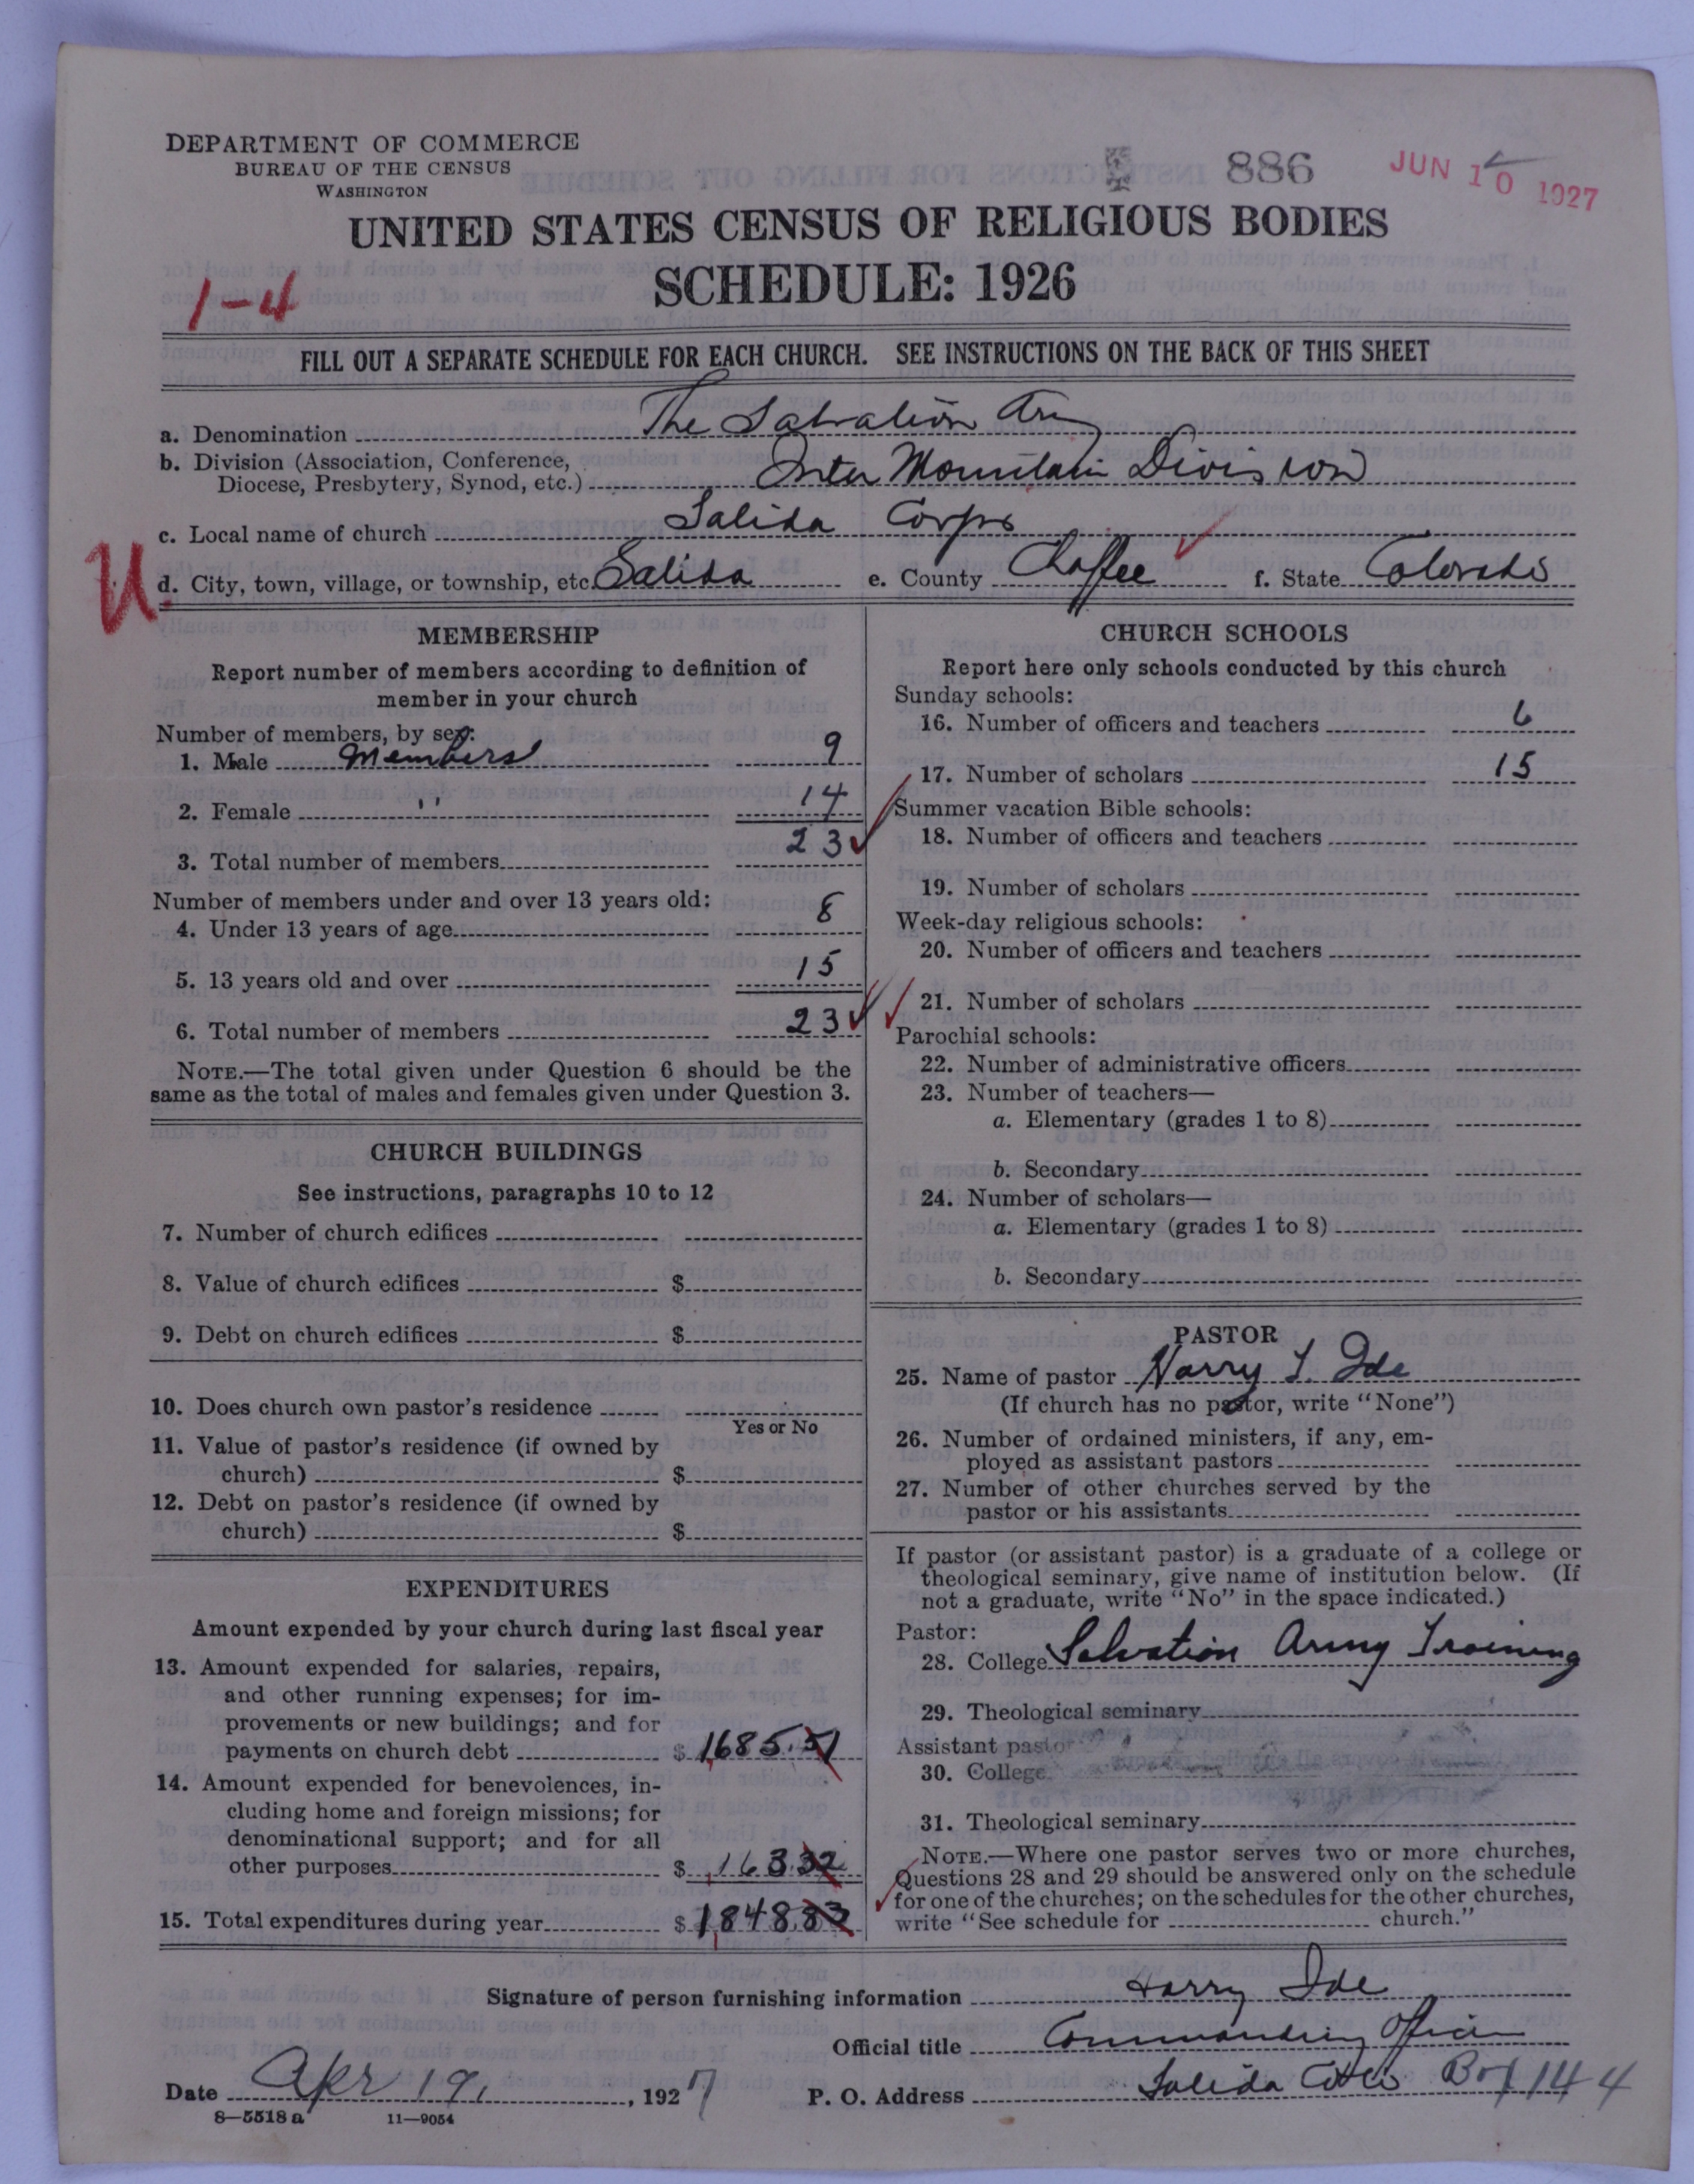 DEPARTMENT OF COMMERCE
BUREAU OF THE CENSUS
WASHINGTON
886
JUN 10 1927
UNITED STATES CENSUS OF RELIGIOUS BODIES
SCHEDULE: 1926
1-4
FILL OUT A SEPARATE SCHEDULE FOR EACH CHURCH. SEE INSTRUCTIONS ON THE BACK OF THIS SHEET
a. Denomination The Salvation Army
b. Division (Association, Conference,
Diocese, Presbytery, Synod, etc.) Inter Mountain Division
c. Local name of church Salida Corps
U
d. City, town, village, or township, etc. Salida e. County Chaffee f. State Colorado
MEMBERSHIP
Report number of members according to definition of
member in your church
Number of members, by sex:
1. Male Members 9
2. Female " 14
3. Total number of members 23
Number of members under and over 13 years old:
4. Under 13 years of age 8
5. 13 years old and over 15
6. Total number of members 23
NOTE.—The total given under Question 6 should be the
same as the total of males and females given under Question 3.
CHURCH BUILDINGS
See instructions, paragraphs 10 to 12
7. Number of church edifices
8. Value of church edifices $
9. Debt on church edifices $
10. Does church own pastor's residence
Yes or No
11. Value of pastor's residence (if owned by
church) $
12. Debt on pastor's residence (if owned by
church) $
EXPENDITURES
Amount expended by your church during last fiscal year
13. Amount expended for salaries, repairs,
and other running expenses; for im-
provements or new buildings; and for
payments on church debt $ 1685.51
14. Amount expended for benevolences, in-
cluding home and foreign missions; for
denominational support; and for all
other purposes $ 163.32
15. Total expenditures during year $ 184883
CHURCH SCHOOLS
Report here only schools conducted by this church
Sunday schools:
16. Number of officers and teachers 6
17. Number of scholars 15
Summer vacation Bible schools:
18. Number of officers and teachers
19. Number of scholars
Week-day religious schools:
20. Number of officers and teachers
21. Number of scholars
Parochial schools:
22. Number of administrative officers
23. Number of teachers—
a. Elementary (grades 1 to 8)
b. Secondary
24. Number of scholars—
a. Elementary (grades 1 to 8)
b. Secondary
PASTOR
25. Name of pastor Harry I. Ide
(If church has no pastor, write "None")
26. Number of ordained ministers, if any, em-
ployed as assistant pastors
27. Number of other churches served by the
pastor or his assistants
If pastor (or assistant pastor) is a graduate of a college or
theological seminary, give name of institution below. (If
not a graduate, write "No" in the space indicated.)
Pastor:
28. College Salvation Army Training
29. Theological seminary
Assistant pastor
30. College
31. Theological seminary
NOTE.—Where one pastor serves two or more churches,
Questions 28 and 29 should be answered only on the schedule
for one of the churches; on the schedules for the other churches,
write "See schedule for church."
Signature of person furnishing information Harry Ide
Official title Commanding Officer
Date Apr 19, 1927 P. O. Address Salida Colo Box 144
8—5518 a 11—9054